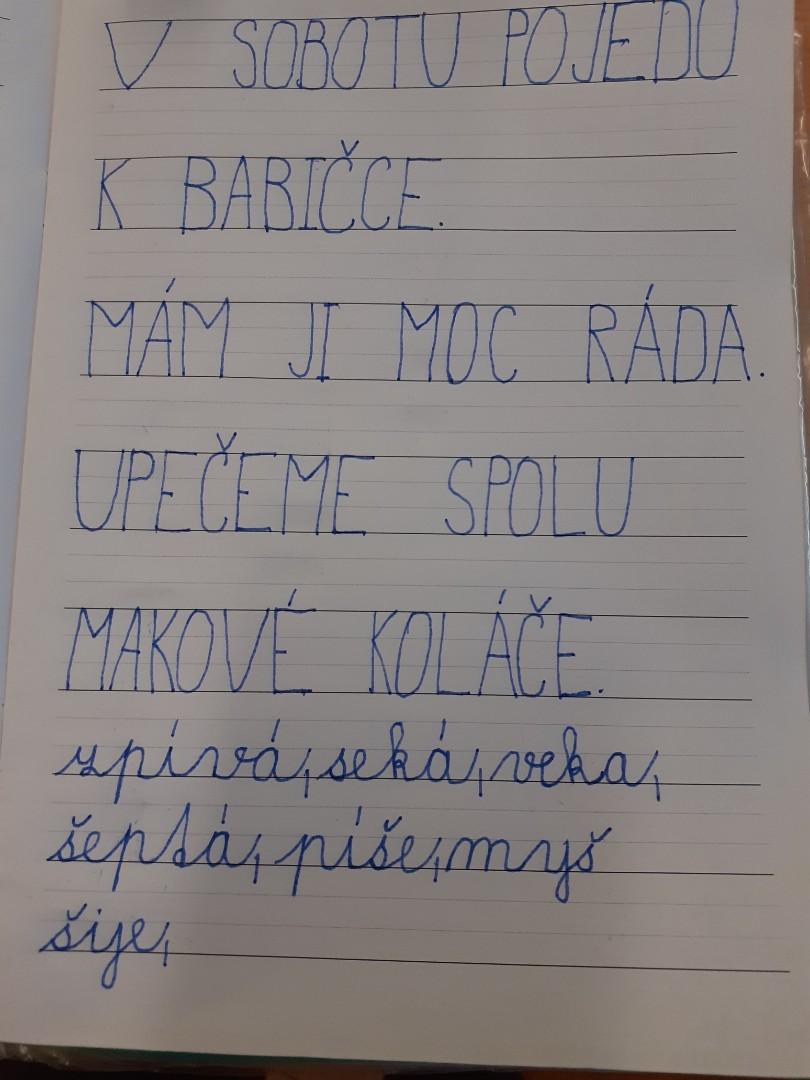 V SOBOTU POJEDU
K BABIČCE.
MÁM JI MOC RÁDA.
UPEČEME SPOLU
MAKOVÉ KOLÁČE.
zpívá, seká, veka,
šeptá, píše, myš
šije,